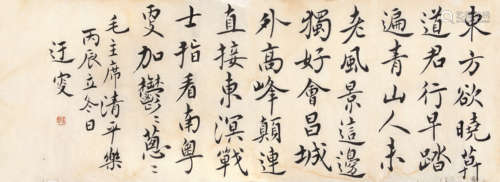 東方欲曉莫
道君行早踏
遍青山人未
老風景這邊
獨好會昌城
外高峰顛連
直接東溟戰
士指看南粵
更加鬱〻蔥〻
毛主席清平樂
丙辰立冬日
迂叟